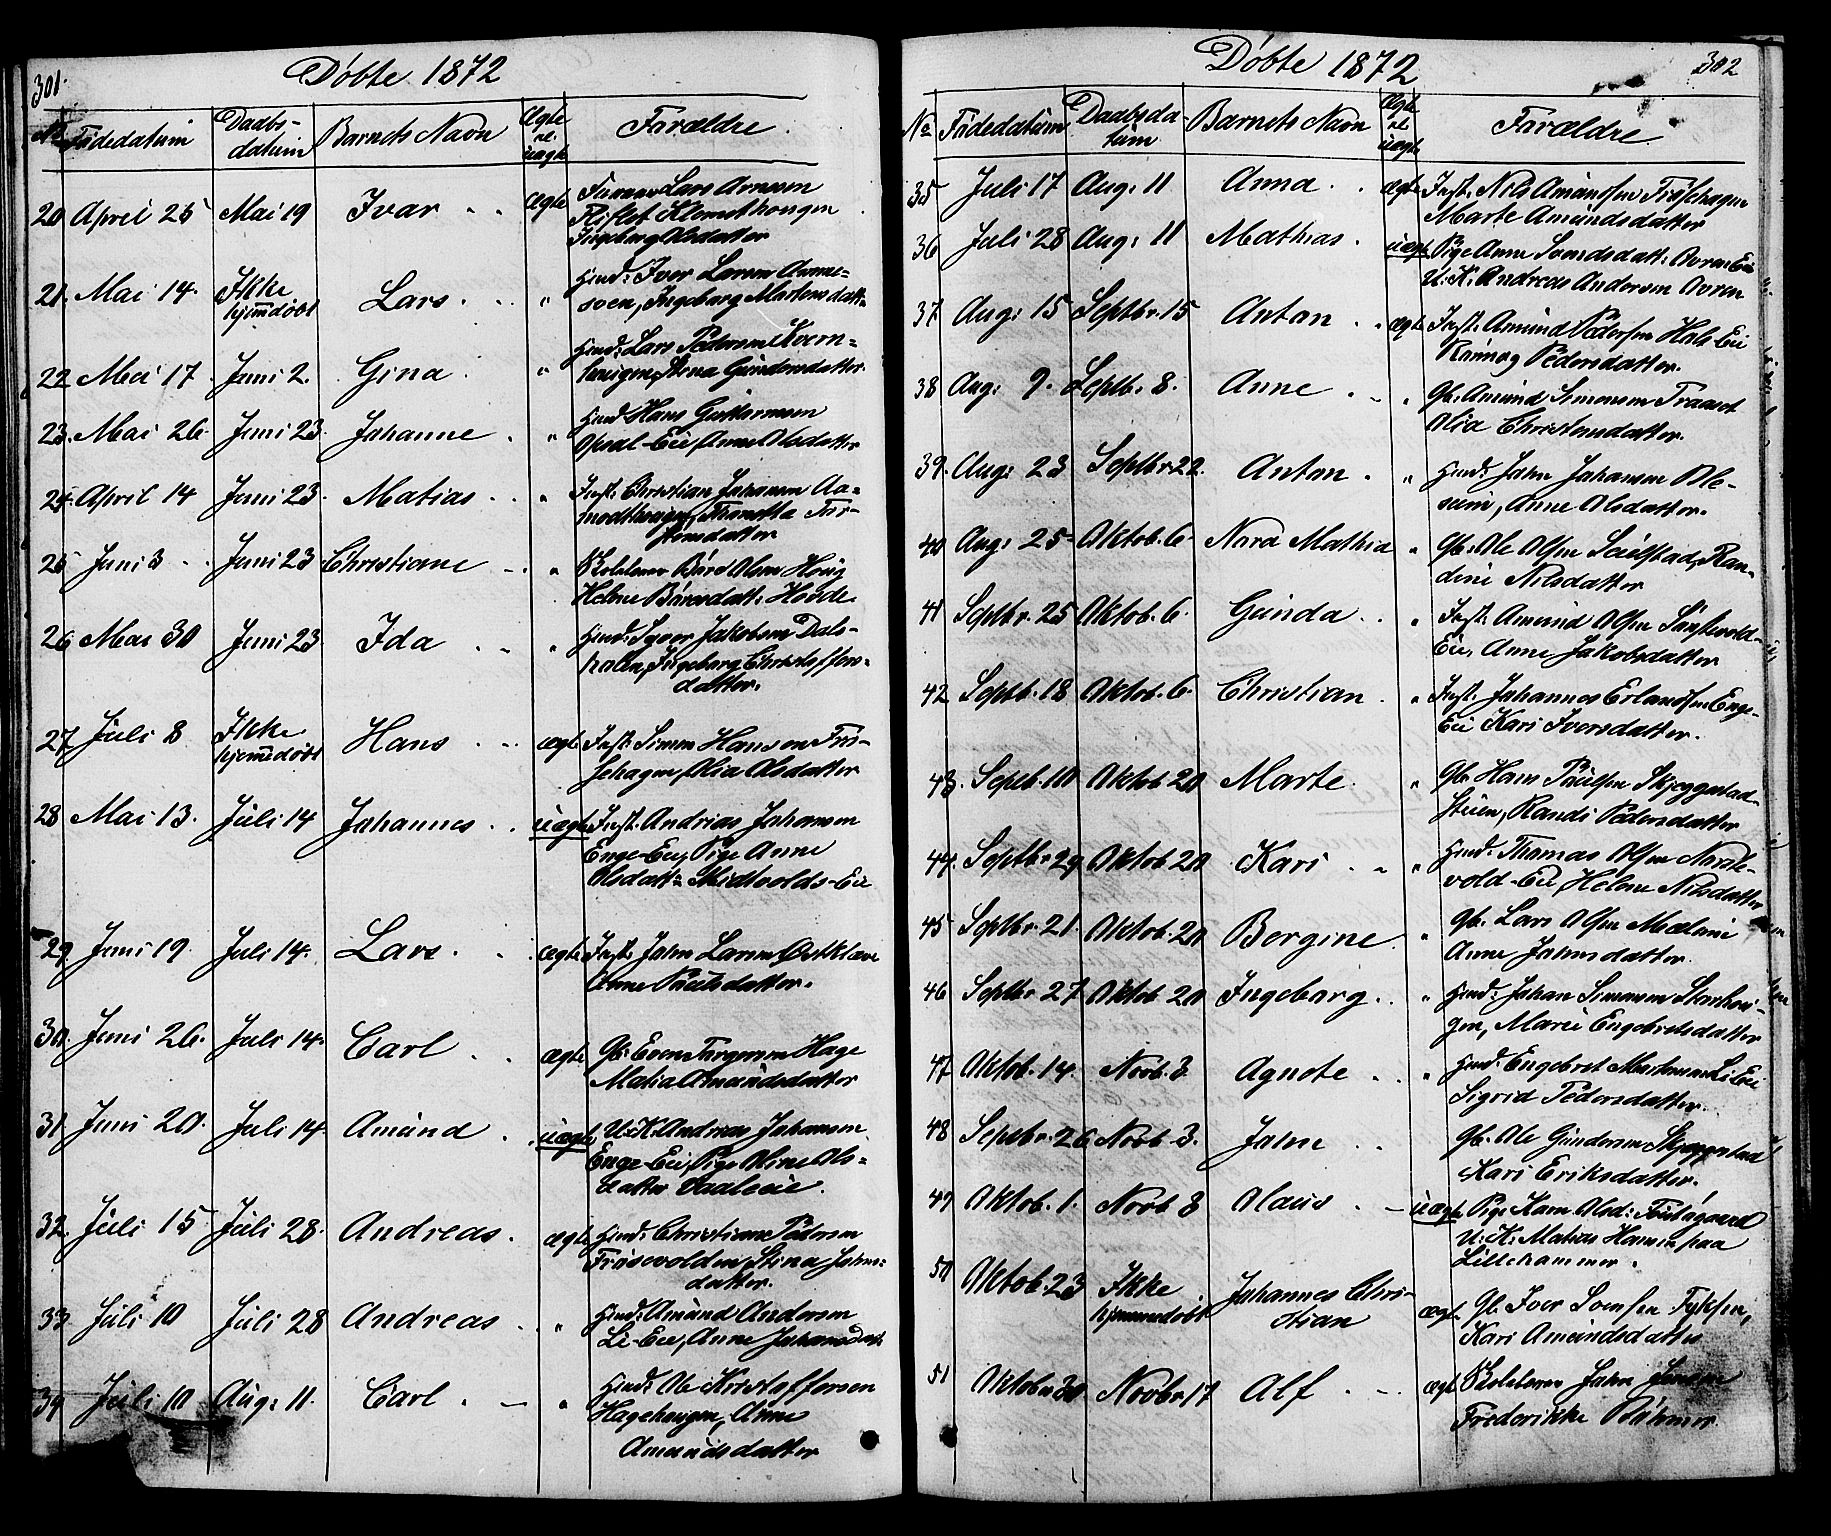 301.
Döbte 1872
No Födedatum Daabsdatum Barnets Navn Ægte el. uægte Forældre.
20 April 25 Mai 19 Ivar ægte Lars Arnesen
Klomsthougen
Ingeborg Olsdatter
21. Mai 14. Ikke hjemmdöbt Lars " Huusd: Iver Larsen
Ingeborg Martensdatt:
22 Mai 17 Juni 2. Gina " Huusd: Lars Pedersen Kvern-
Stina Gundersdatter.
23. Mai 26. Juni 23. Johanne " Huusd: Hans Guttormsen
Opsal-Eie, Anne Olsdatter
24. April 14 Juni 23. Matias " Inst: Christian Johansen Aa-
modthougen, Thor-
stensdatter
25 Juni 3 Juni 23 Christiane " Skolelærer Bård Olsen
Helene Bårdsdatt: Hovde.
26 Mai 30 Juni 23 Ida " Huusd: Syver Jakobsen Dals-
Ingeborg Christoffers-
datter.
27 Juli 8 Ikke hjemmedöbt Hans ægte Inst: Simen Hansen Frö-
sehagen, Olia Olsdatter
28 Mai 13. Juli 14 Johannes uægte Inst. Andrias Johansen
Enge-Eie, Pige Anne
Olsdatt: Midtvolds-Eie
29 Juni 19. Juli 14. Lars. ægte Inst: John Larsen Østklæve
Anne Paulsdatter.
30. Juni 26. Juli 14. Carl ægte Gb: Even Torgersen Hage
Matia Amundsdatter
31. Juni 20. Juli 14. Amund uægte U: K: Andreas Johansen
Enge-Eie, Pige Oline Ols-
datter
32. Juli 15 Juli 28. Andreas. ægte Huusd: Christian Pedersen
Frösvolden Stina Johns-
datter.
33. Juli 10 Juli 28 Andreas " Huusd: Amund Andersen
Li-Eie, Anne Johansdatt
34 Juli 10 Aug: 11. Carl " Huusd: Ole Kristoffersen
Hagehaugen, Anne
Amundsdatter
302
Döbte 1872
No Födedatum Daabsdatum Barnets Navn Ægte el uægte Forældre.
35 Juli 17 Aug: 11 Anna ægte Inst: Nils Amundsen Fröschagen
Marte Amundsdatter
36 Juli 28 Aug: 11 Mathias uægte Pige Anne Svendsdatt:
U: K: Andreas Andersen
37 Aug: 15 Septbr. 15 Anton ægte Inst: Amund Pedersen Hols Eie
Rønnog Pedersdatter.
38 Aug: 9. Septb. 8. Anne " Gb: Amund Simensen
Olia Christensdatter.
39. Aug: 23 Septbr 22. Anton " Huusd: John Johansen Ble-
sum, Anne Olsdatter.
40 Aug: 25 Oktob. 6. Nora Mathia " Gb: Ole Olsen Saulstad, Ran-
dine Nilsdatter
41 Septbr. 25 Oktob. 6. Gunda " Inst: Amund Olsen
Eie, Anne Jakobsdatter
42 Septb. 18 Oktob. 6 Christian " Inst: Johannes Erlandsen Enge-
Eie Kari Iversdatter.
43. Septb. 10 Oktob 20 Marte. " Gb. Hans Paulsen Skjeggestad-
stuen, Randi Pedersdatter
44. Septbr 29 Oktob 20 Kari " Huusd: Thomas Olsen
vold-Eie, Helene Nilsdatter
45 Septbr. 21. Oktob. 20 Bergine. " Gb: Lars Olsen
Anne Johnsdatter.
46 Septbr 27 Oktob 20 Ingeborg " Huusd: Johan Simensen
gen, Marie Engebretsdatter
47 Oktob. 14. Novb. 3 Agnete " Huusd: Engebret Martinsen Li Eie
Sigrid Pedersdatter.
48 Septbr. 26 Novb. 3. John " Gb. Ole Gundersen Skjeggestad
Kari Eriksdatter.
49 Oktob. 1. Novb. 3 Olaus uægte Pige Karen Olsd:
U: K: Matias Hansen paa
Lillehammer.
50 Oktob. 23 Ikke hjemmedöbt Johannes Chri-
stian ægte Gb. Iver Svensen
Kari Amundsdatter
51 Oktober 30 Novbr 17 Alf ægt Skolelærer John
Frederikke Böhmer.